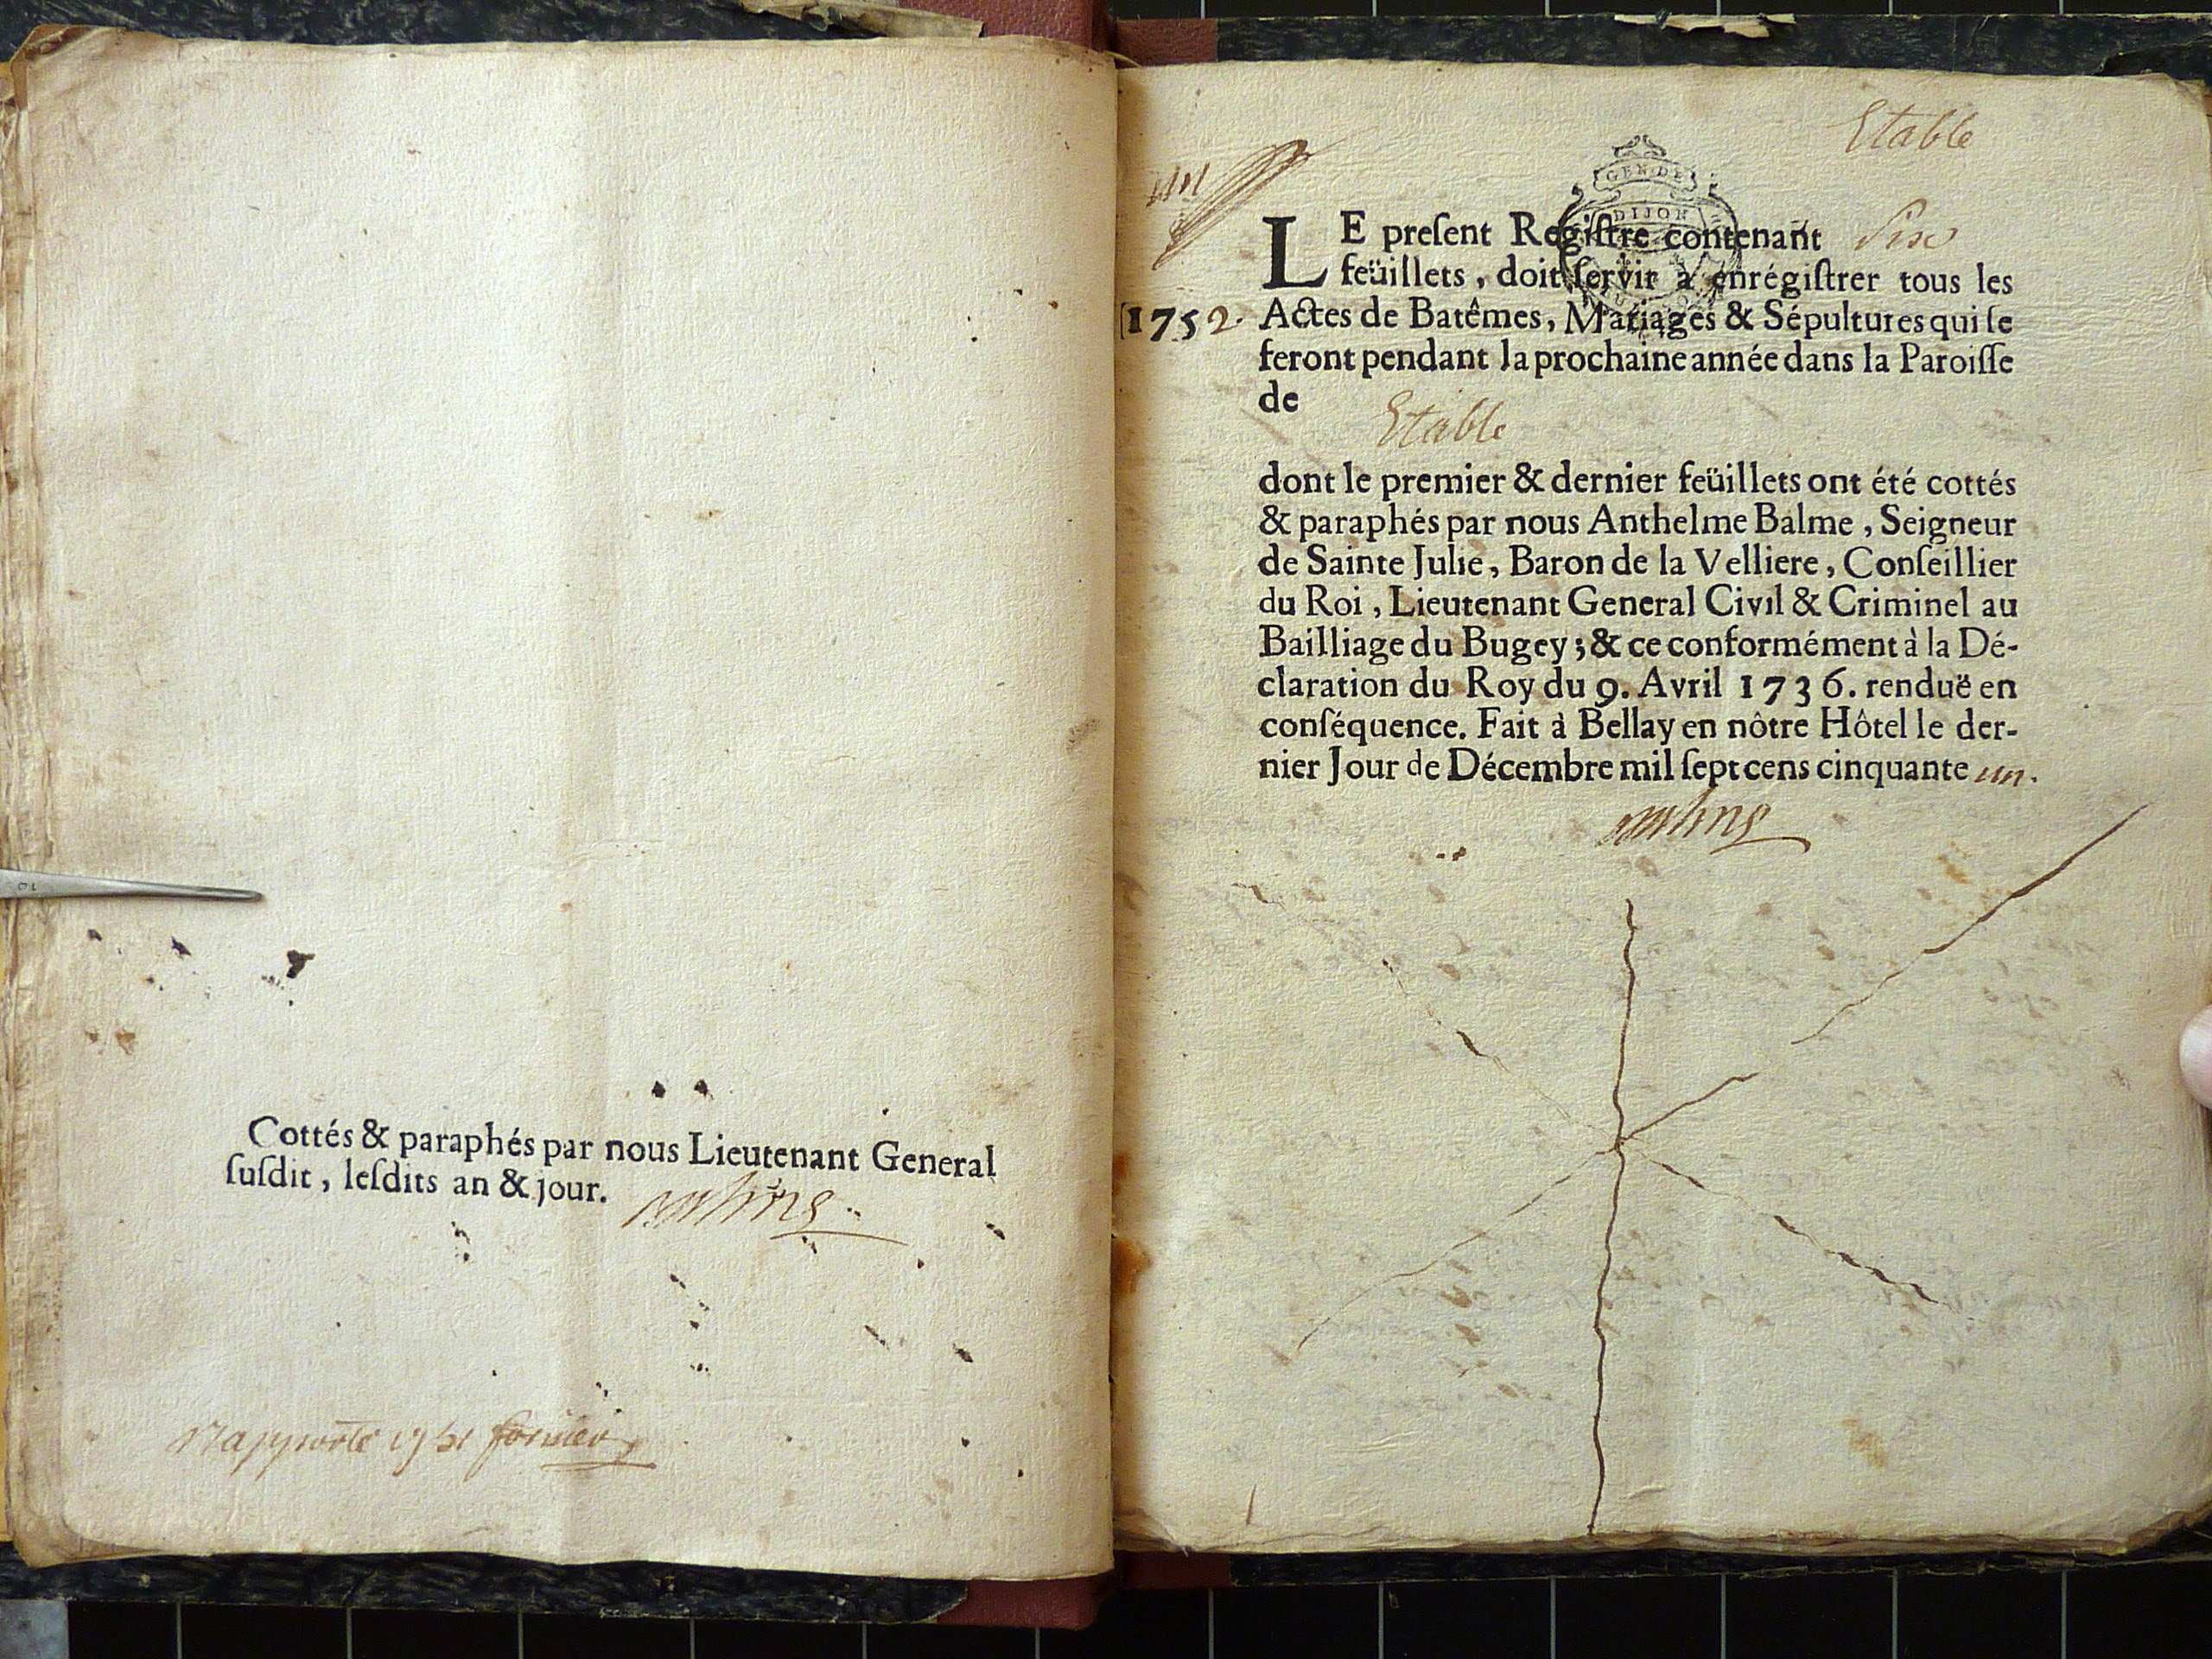 Cottés & paraphés par nous Lieutenant General
ſuſdit, leſdits an & jour.
Etable
GEN DE
DIJON
LE preſent Regiſtre contenant Six
feüillets, doit ſervir à enrégiſtrer tous les
1752. Actes de Batêmes, Mariages & Sépultures qui ſe
feront pendant la prochaine année dans la Paroiſſe
de
Etable
dont le premier & dernier feüillets ont été cottés
& paraphés par nous Anthelme Balme, Seigneur
de Sainte Julie, Baron de la Velliere, Conſeillier
du Roi, Lieutenant General Civil & Criminel au
Bailliage du Bugey; & ce conformément à la Dé-
claration du Roy du 9. Avril 1736. renduë en
conſéquence. Fait à Bellay en nôtre Hôtel le der-
nier Jour de Décembre mil ſept cens cinquante un.